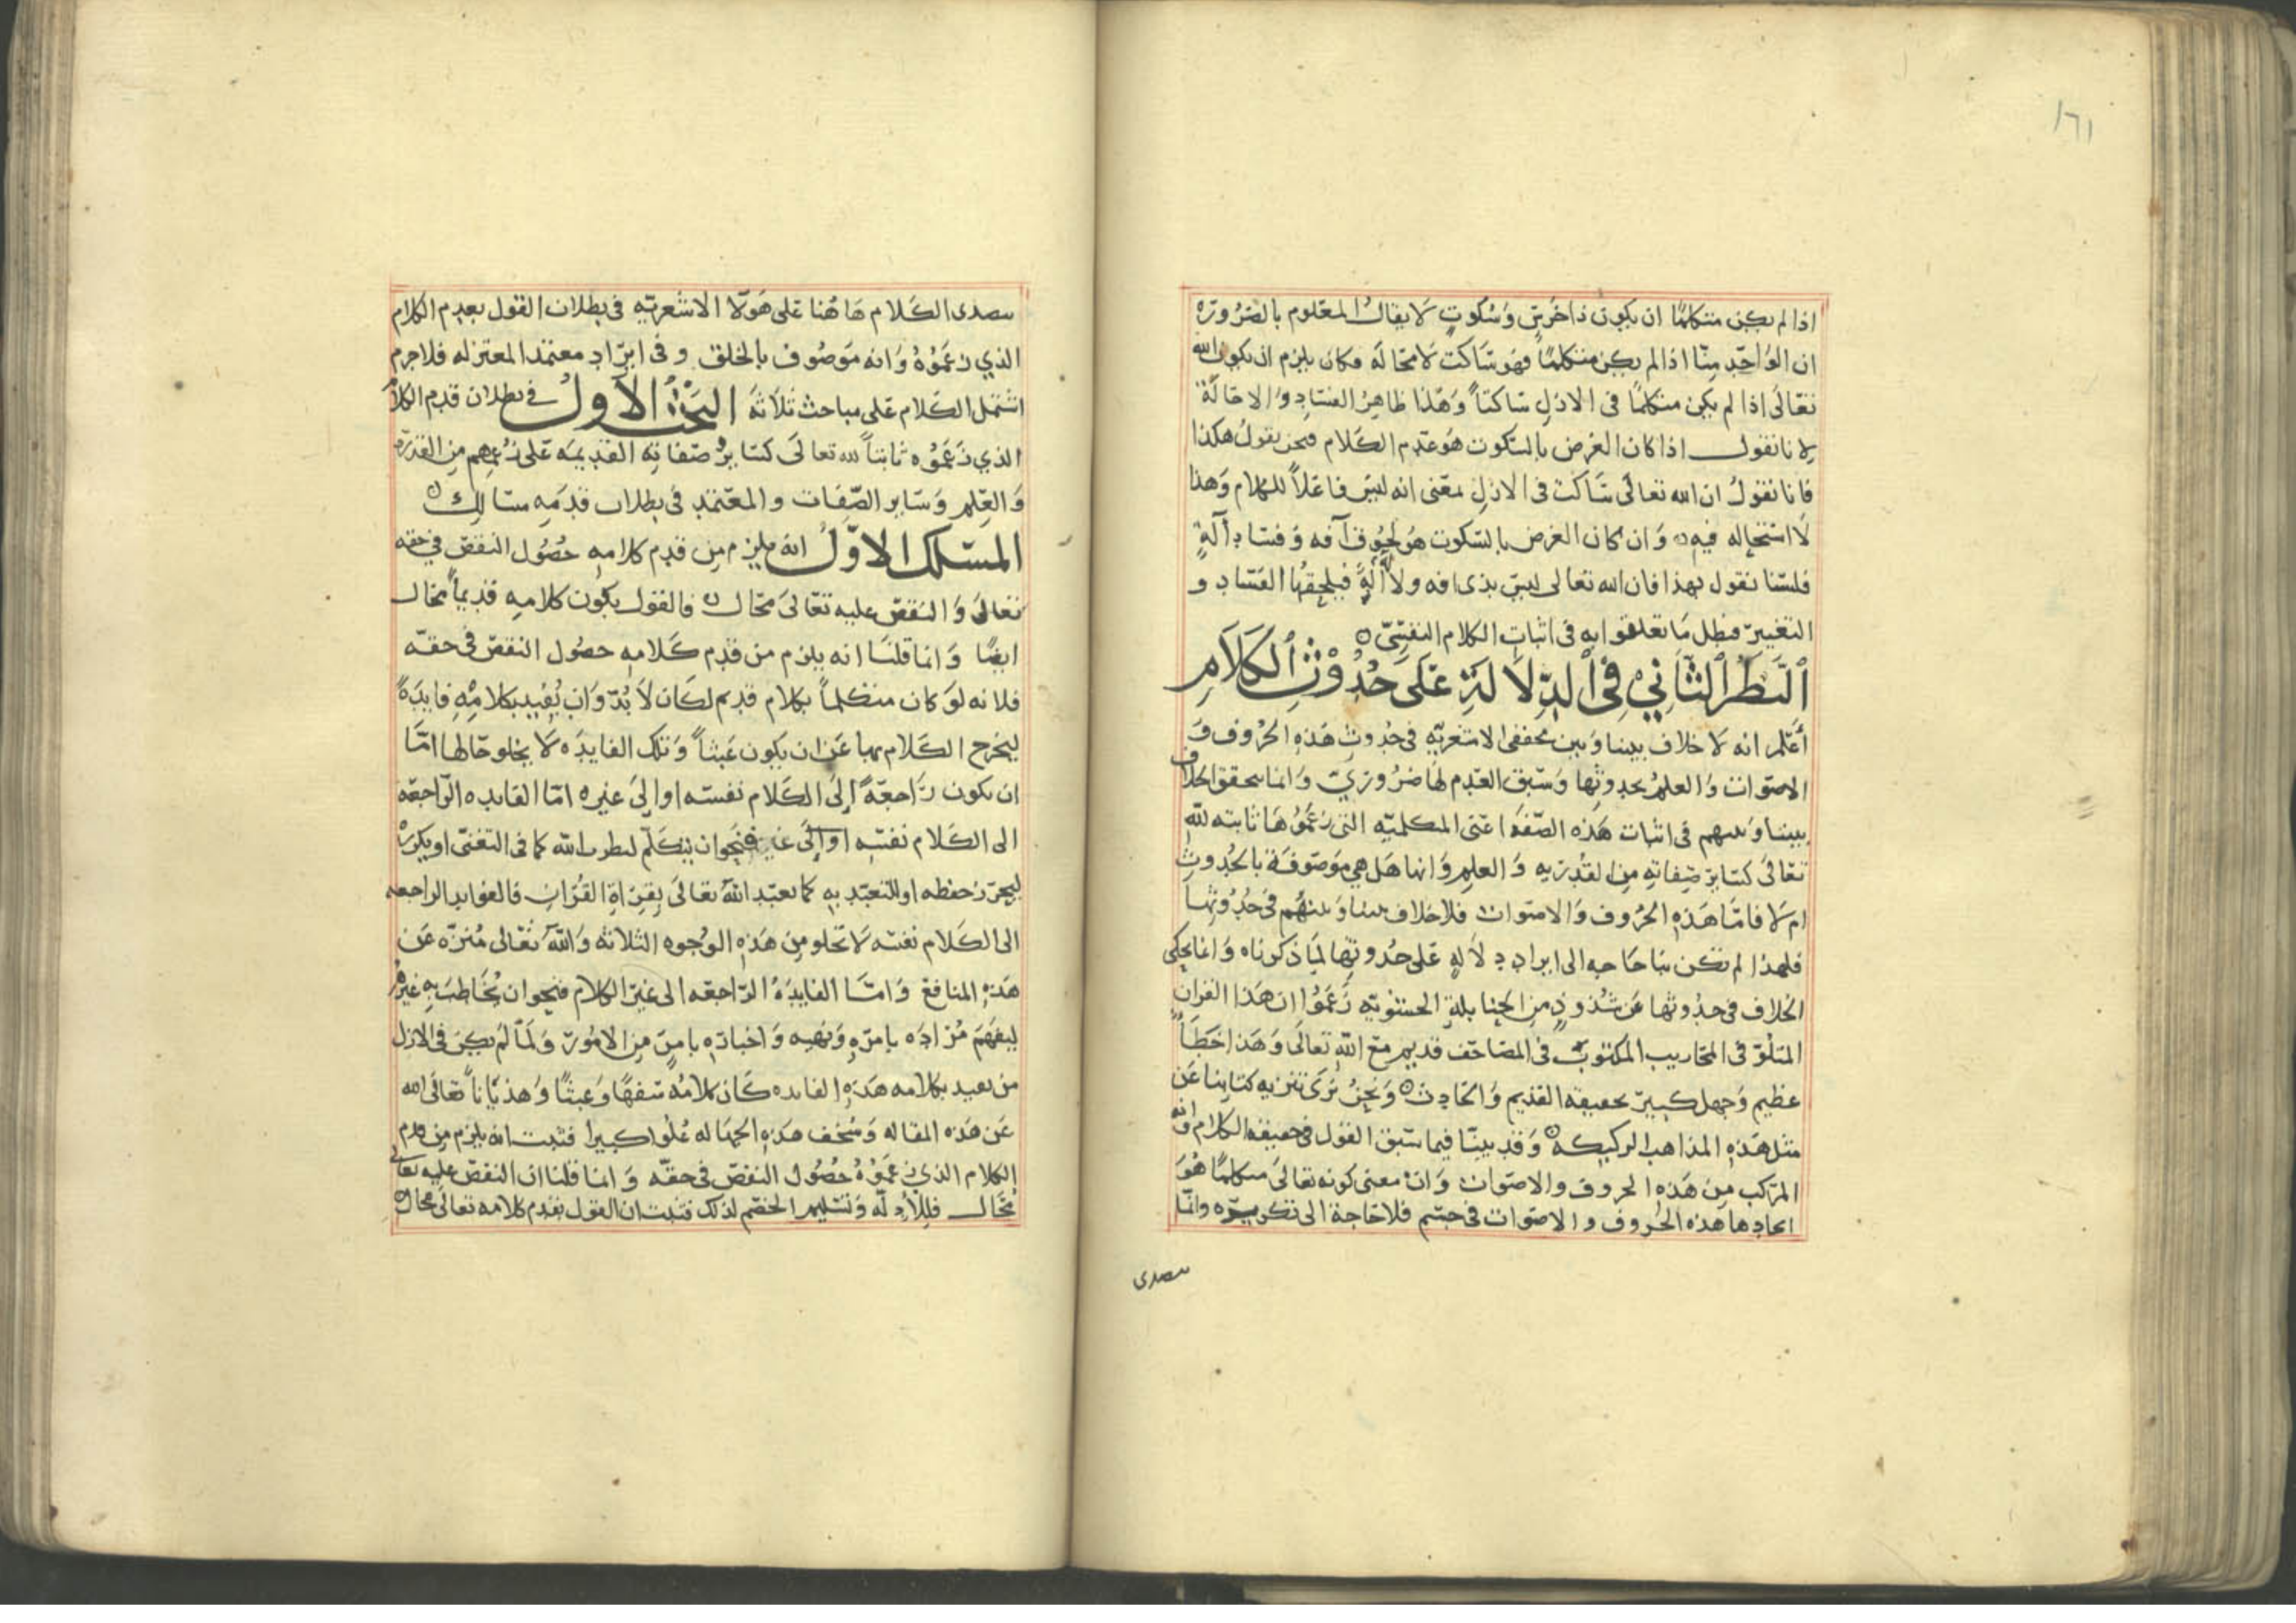 ١٦١
اذا لم يكن متكلمًا ان يكون ذا خرس وسكوت لا يقال المعلوم بالضروره
ان الواحد منا اذا لم يكن متكلمًا فهو ساكت لا محاله فكان يلزم ان يكون الله
تعالى اذا لم يكن متكلمًا فى الازل ساكتاً وهذا ظاهر الفساد والاحالة
لانا نقول اذا كان الغرض بالسكوت هو عدم الكلام فنحن نقول هكذا
فانا نقول ان الله تعالى ساكت فى الازل بمعنى انه ليس فاعلاً للكلام وهذا
لا استحاله فيه وان كان الغرض بالسكوت هو لحوق آفه وفساد آلة
فلسنا نقول بهذا فان الله تعالى ليس بذى افه ولا آلة فيلحقها الفساد و
التغيير فبطل ما تعلقوا به فى اثبات الكلام النفسى
النظر الثاني في الدلالة على حدوث الكلام
اعلم انه لا خلاف بيننا وبين محققى الاشعريه فى حدوث هذه الحروف و
الاصوات والعلم بحدوثها وسبق العدم لها ضروري وانما يتحقق الخلاف
بيننا وبينهم فى اثبات هذه الصفه اعنى المتكلميه التى زعموها ثابته لله
تعالى كساير صفاته من القدريه والعلم وانها هل هي موصوفة بالحدوث
ام لا فاما هذه الحروف والاصوات فلا خلاف بيننا وبينهم فى حدوثها
فلهذا لم تكن بنا حاجه الى ايراد دلاله على حدوثها لما ذكرناه وانما يحكى
الخلاف فى حدوثها عن شذوذ من الحنابلة الحشويه زعموا ان هذا القران
المتلو فى المحاريب المكتوب فى المصاحف قديم مع الله تعالى وهذا خطأ
عظيم وجهل كبير بحقيقه القديم والحادث ونحن نرى تنزيه كتابنا عن
مثل هذه المذاهب الركيكه وقد بينا فيما سبق القول فى حقيقه الكلام وانه
المركب من هذه الحروف والاصوات وان معنى كونه تعالى متكلمًا هو
ايجادها هذه الحروف والاصوات فى جسم فلا حاجة الى تكريره وانما
سصدى
سصدى الكلام هاهنا على هولا الاشعريه فى بطلان القول بقدم الكلام
الذي زعموه وانه موصوف بالخلق وفى ايراد معتمد المعتزله فلا جرم
اشتمل الكلام على مباحث ثلاثه البحث الاول فى بطلان قدم الكلام
الذي زعموه ثابتاً لله تعالى كساير صفاته القديمه على زعمهم من القدره
والعلم وساير الصفات والمعتمد فى بطلان قدمه مسالك
المسلك الاول انه يلزم من قدم كلامه حصول النقص في حقه
تعالى والنقص عليه تعالى محال فالقول بكون كلامه قديماً محال
ايضًا وانما قلنا انه يلزم من قدم كلامه حصول النقص فى حقه
فلانه لو كان متكلماً بكلام قديم لكان لا بد وان يفيد بكلامه فايدةً
ليخرج الكلام بها عن ان يكون عبثاً وتلك الفايده لا يخلو حالها اما
ان تكون راجعةً الى الكلام نفسه او الى غيره اما الفايده الراجعة
الى الكلام نفسه او الى فنحو ان يتكلم ليطرب الله كما فى التغنى او يكرر
ليحرز حفظه او للتعبد به كما تعبد الله تعالى بقراة القران فالفوايد الراجعه
الى الكلام نفسه لا تخلو من هذه الوجوه الثلاثه والله تعالى منزه عن
هذه المنافع واما الفايده الراجعه الى غير الكلام فنحو ان يخاطب به غيره
ليفهم مراده بامره ونهيه واخباره بامر من الامور ولما لم يكن فى الازل
من يفيد بكلامه هذه الفايده كان كلامه سفهًا وعبثًا وهذياناً تعالى الله
عن هذه المقاله وسخف هذه الجهاله علوا كبيرا فثبت انه يلزم من قدم
الكلام الذي زعموه حصول النقص فى حقه وانما قلنا ان النقص عليه تعالى
محال فللادله وتسليم الخصم لذلك فثبت ان القول بقدم كلامه تعالى محال